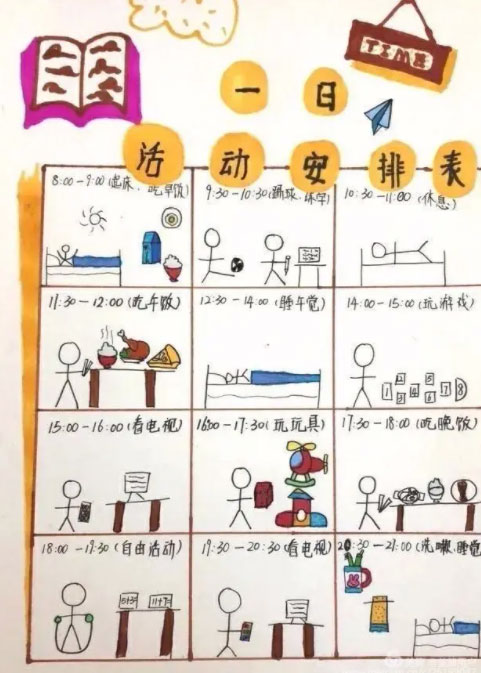 TIME
一日
活动安排表
8:00-9:00(起床、吃早饭)
9:30-10:30(踢球、练字)
10:30-11:00(休息)
11:30-12:00(吃午饭)
12:30-14:00(睡午觉)
14:00-15:00(玩游戏)
15:00-16:00(看电视)
16:00-17:30(玩玩具)
17:30-18:00(吃晚饭)
18:00-19:30(自由活动)
19:30-20:30(看电视)
20:30-21:00(洗漱、睡觉